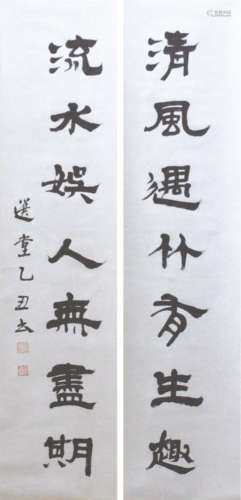 清風遇竹有生趣
流水娛人無盡期
選堂乙丑書